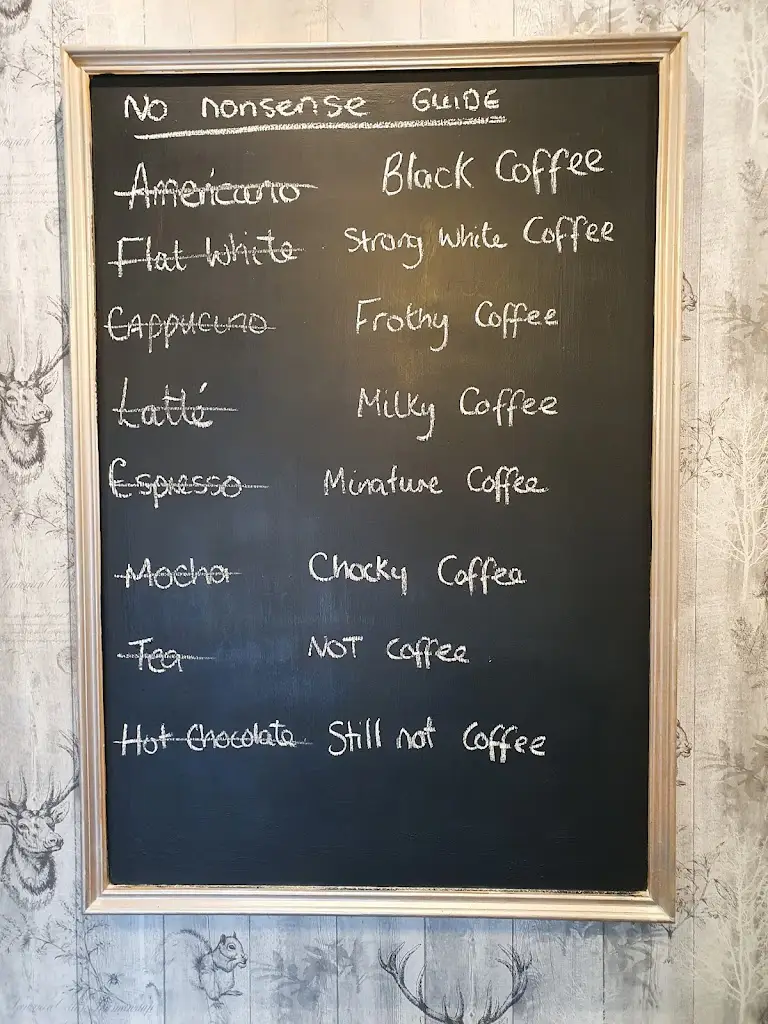 No nonsense GUIDE
Americano Black Coffee
Flat White Strong White Coffee
Cappucino Frothy Coffee
Latté Milky Coffee
Espresso Minature Coffee
Mocha Chocky Coffee
Tea NOT Coffee
Hot Chocolate Still not Coffee